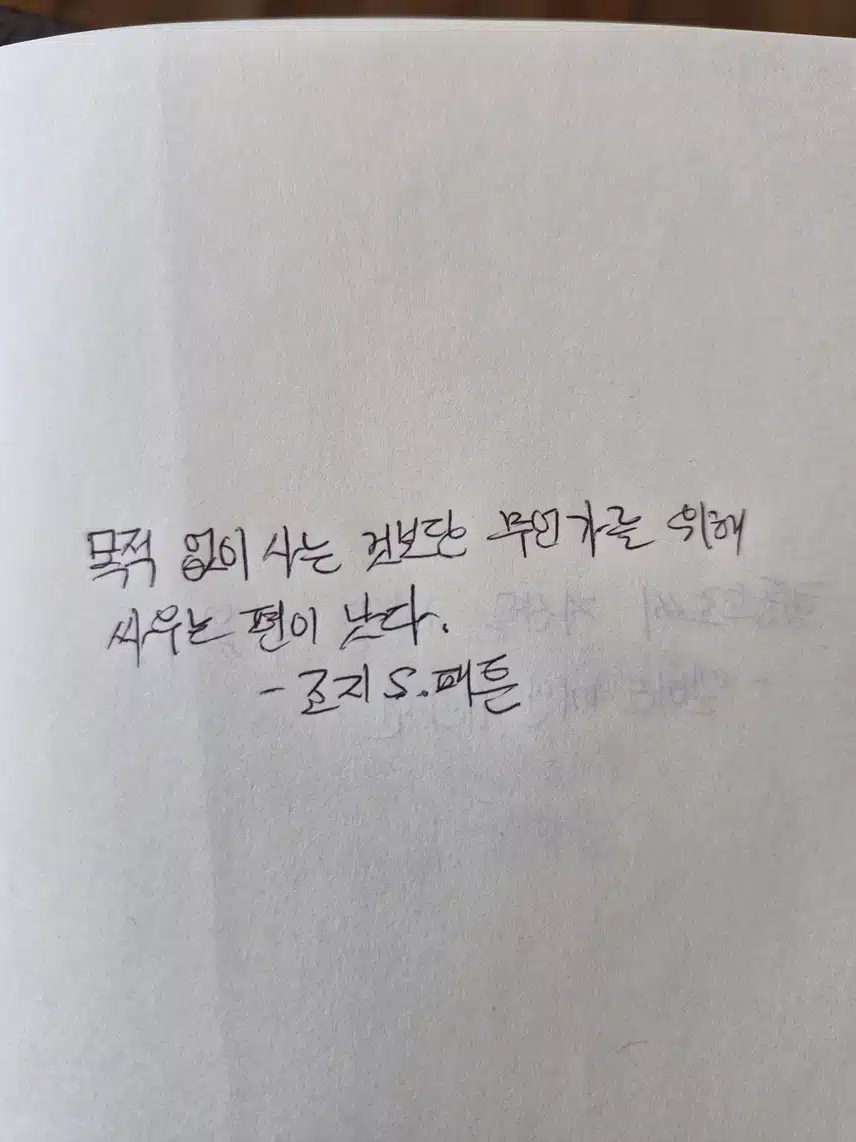 목적 없이 사는 것보단 무언가를 위해
싸우는 편이 낫다.
- 조지 S. 패튼